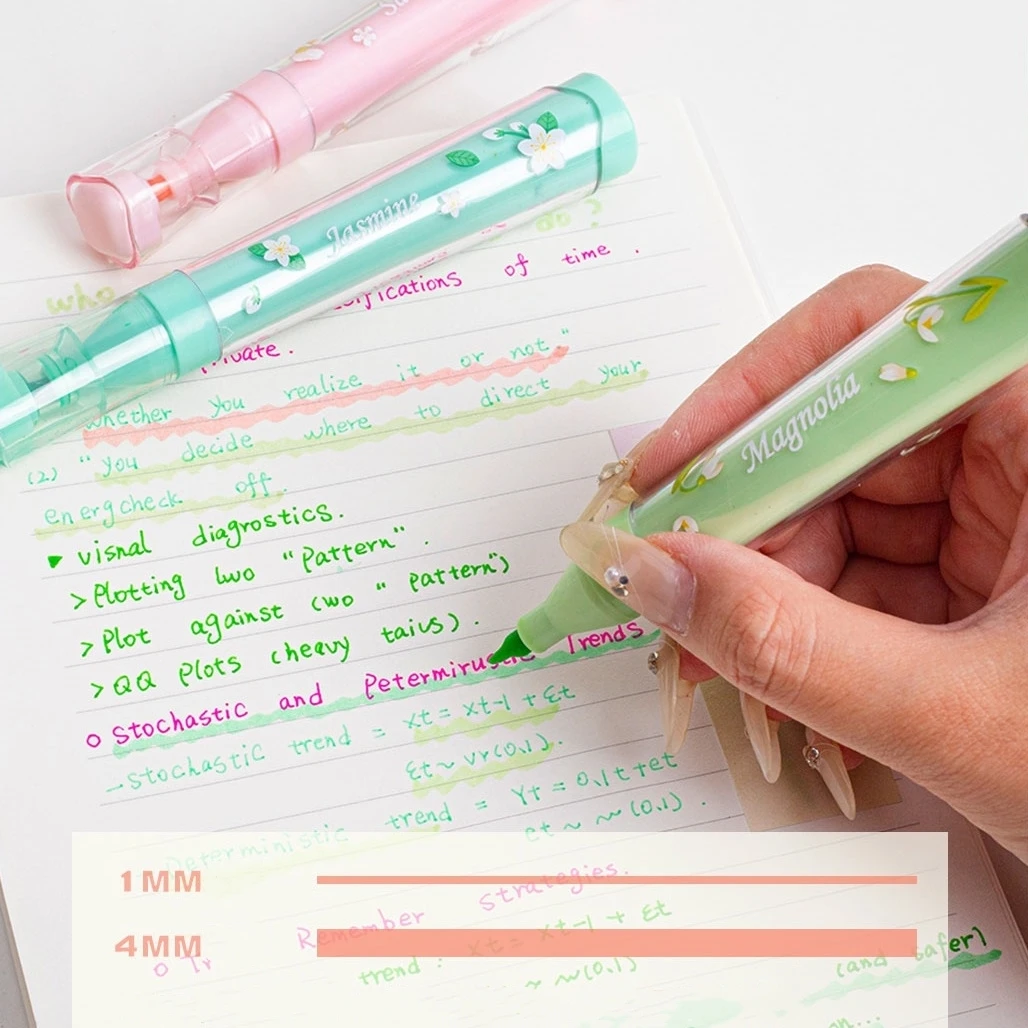 Jasmine
Magnolia
who do ?
of time .
whether you realize it or not"
(2) "you decide where to direct your
energcheck off.
▶ visnal diagrostics.
> Plotting lwo "Pattern".
> Plot against (wo " pattern")
> QQ Plots (heavy taius).
o Stochastic and Trends
-stochastic trend = xt = xt-1 + εt
εt ~ vr(0.1).
Deterministic trend = Yt = 0.1t+et
et ~ ~ (0.1) .
1MM
Remember strategies.
4MM
trend : xt = xt-1 + εt
(and safer)